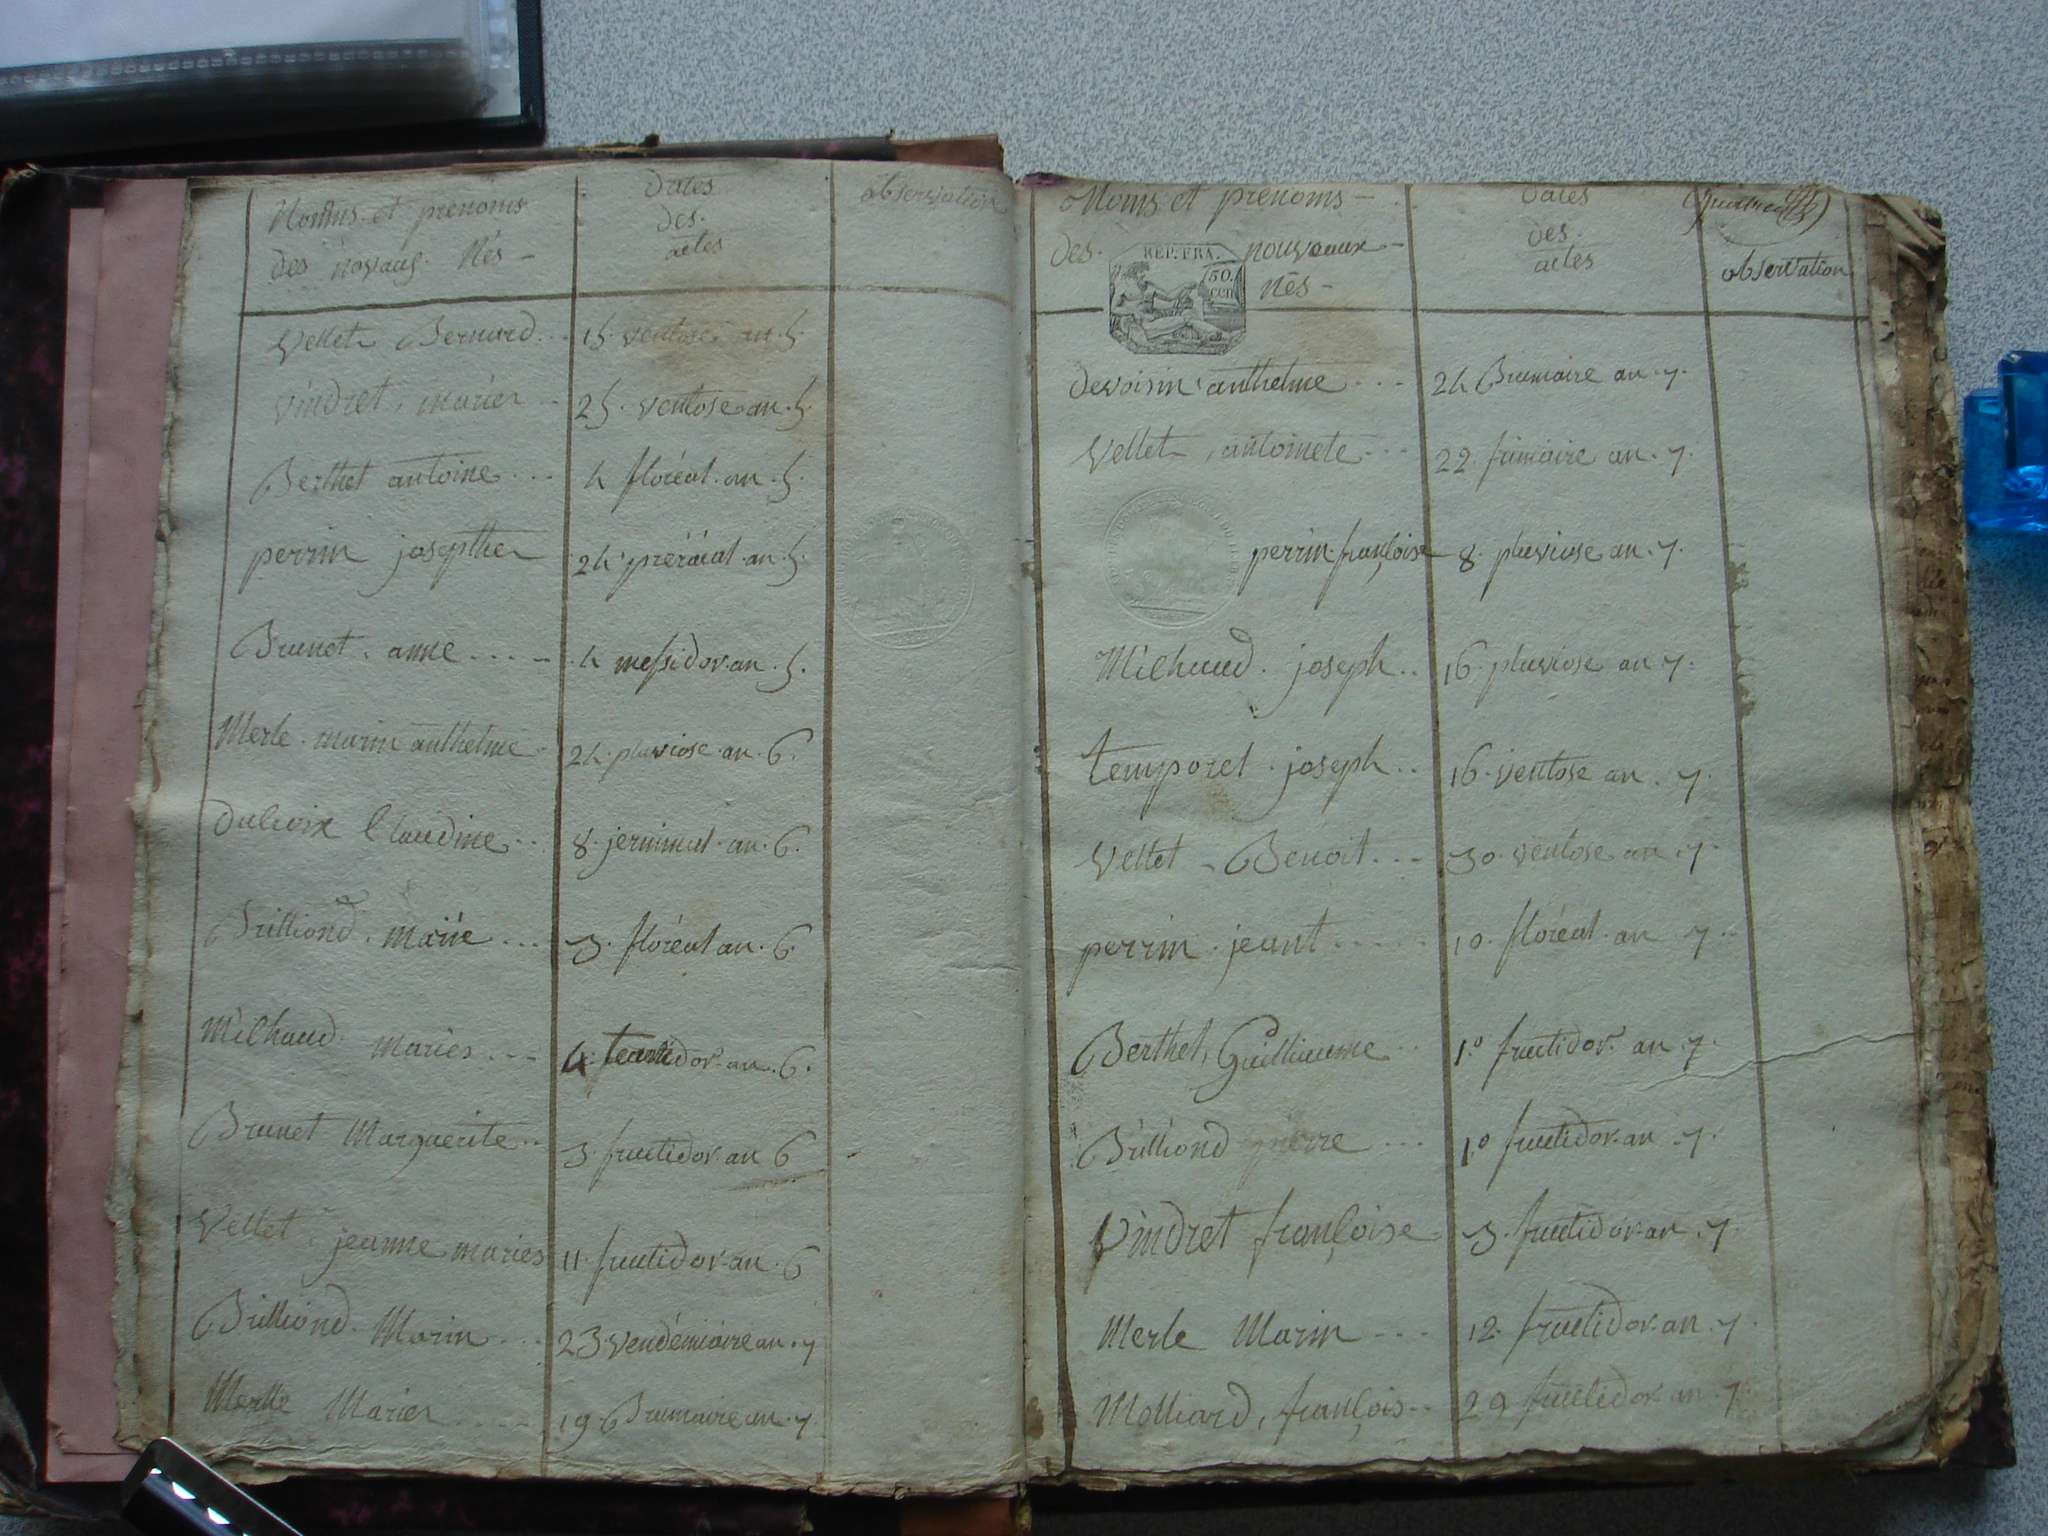 Noms et prenoms
des novaus Nés -
Dates
des
actes
observation
Vellet Bernard... 15 ventose an 5.
Vindret, marier - 25. ventose an. 5.
Berthet antoine... 4 floréal. an. 5.
perrin josepthe 24 preréal. an. 5.
Brunet. anne.... 4 messidor. an. 5.
Merle. marin anthelme 24. pluviose. an. 6.
Claudine.. 8. jerminal. an. 6.
Brilliond. marie... 3. floréal an. 6.
Milhaud. maries... 4. an. 6.
Brunet Marguerite.. 3. fructidor. an 6
Vellet. jeanne maries 11. fructidor. an. 6
Brilliond. Marin... 23. vendémiaire an. 7
Merlle Marier.... 19. Brumaire an. 7.
Noms et prenoms -
des. nouveaux -
Nés -
REP. FRA.
50.
cen
Dates
des.
actes
observation
devoisin anthelme... 24 Brumaire an. 7.
Vellet, antoinete... 22. frimaire an. 7.
perrin françoise 8. pluviose an. 7.
Milhaud. joseph.. 16. pluviose an 7.
temporel. joseph.. 16. ventose an. 7.
Vellet - Benoit... 30. ventose an. 7.
perrin. jeant..... 10. floréal. an 7.
Berthet, Guilliaume.. 1.º fructidor. an. 7.
Brilliond pierre... 1.º fructidor. an. 7.
Vindret françoise 3. fructidor. an. 7.
Merle Marin... 12. fructidor. an. 7.
Molliard, françois.. 29 fructidor an. 7.